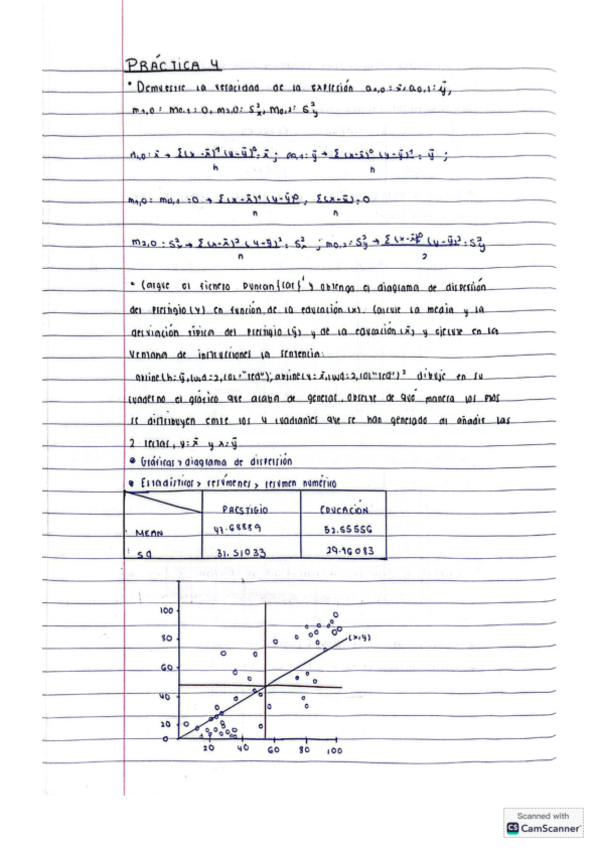 PRÁCTICA 4
• Demuestre la veracidad de la expresión a1,0: x̄, a0,1: ȳ,
m1,0 = m0,1 = 0, m2,0: S²x, m0,2: S²y
a1,0: x̄ → Σ(x-x̄)¹(y-ȳ)⁰: x̄ ; a0,1: ȳ → Σ(x-x̄)⁰(y-ȳ)¹: ȳ ;
n n
m1,0: m0,1 :0 → Σ(x-x̄)¹(y-ȳ)⁰, Σ(x-x̄):0
n n
m2,0: S²x → Σ(x-x̄)²(y-ȳ)⁰: S²x ; m0,2: S²y → Σ(x-x̄)⁰(y-ȳ)²: S²y
n 2
• Cargue el fichero Duncan{car} y obtenga el diagrama de dispersión
del prestigio (y) en función de la educación (x). Calcule la media y la
desviación típica del prestigio (ȳ) y de la educación (x̄) y ejecute en la
ventana de instrucciones la sentencia:
abline(h=ȳ, lwd=2, col="red"); abline(v=x̄, lwd=2, col="red") dibuje en su
cuaderno el gráfico que acaba de generar. observe de qué manera los
se distribuyen entre los 4 cuadrantes que se han generado al añadir las
2 rectas, y: x̄ y x: ȳ
• Gráficas > diagrama de dispersión
• Estadísticos > resúmenes > resumen numérico
PRESTIGIO EDUCACIÓN
MEAN 47.68889 52.55556
SD 31.51033 29.76083
100
80
(x,y)
60
40
20
0
20 40 60 80 100
Scanned with
CS CamScanner